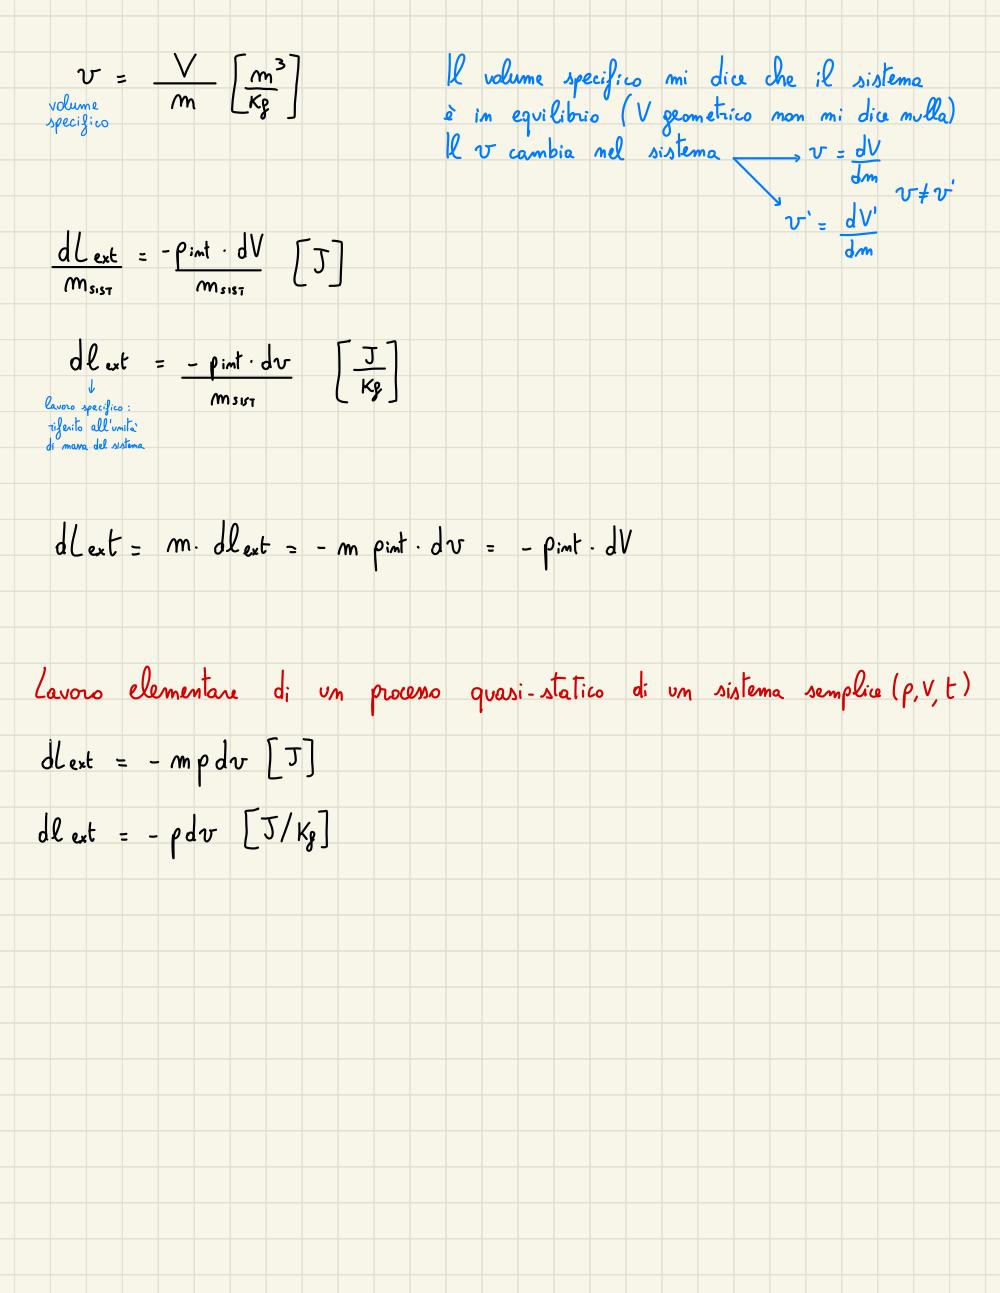 v = V/m [m³/Kg]
volume
specifico
Il volume specifico mi dice che il sistema
è in equilibrio (V geometrico non mi dice nulla)
Il v cambia nel sistema → v = dV/dm
v ≠ v'
v' = dV'/dm
dLext/mSIST = -pint · dV/mSIST [J]
dlext = - pint · dv/mSIST [J/Kg]
↓
lavoro specifico :
riferito all'unità
di massa del sistema
dLext = m · dlext = - m pint · dv = - pint · dV
Lavoro elementare di un processo quasi-statico di un sistema semplice (p, V, t)
dLext = - m p dv [J]
dlext = - p dv [J/Kg]